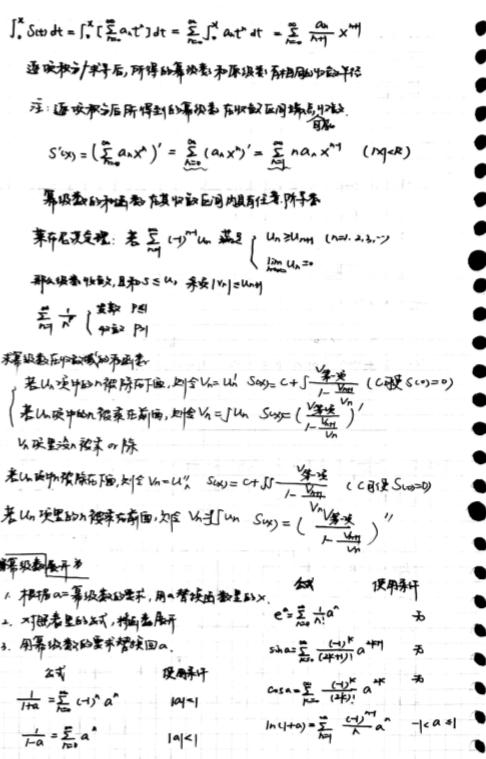 ∫₀ˣ S(t)dt = ∫₀ˣ [∑_{n=0}^∞ aₙtⁿ]dt = ∑_{n=0}^∞ ∫₀ˣ aₙtⁿ dt = ∑_{n=0}^∞ aₙ/(n+1) x^{n+1}
逐项积分/求导后,所得的幂级数和原级数有相同的收敛半径
注:逐项积分后所得到的幂级数在收敛区间端点
S'(x) = (∑_{n=0}^∞ aₙxⁿ)' = ∑_{n=0}^∞ (aₙxⁿ)' = ∑_{n=1}^∞ naₙx^{n-1} (|x|<R)
幂级数的和函数在其收敛区间内具有任意阶导数
莱布尼茨定理:若 ∑_{n=1}^∞ (-1)^{n-1}uₙ 满足 { uₙ≥uₙ₊₁ (n=1,2,3,…)
lim_{n→∞} uₙ=0
那么级数收敛,且和 S≤u₁ 余项|rₙ|≤uₙ₊₁
∑_{n=1}^∞ 1/nᵖ { 发散 p≤1
收敛 p>1
求幂级数在收敛域的和函数:
若Uₙ项中的n被除在下面,则令Vₙ=Uₙ' S(x)=C+∫ V第一项/(1-Vₙ₊₁/Vₙ) (C可设 S(0)=0)
若Uₙ项中的n被乘在前面,则令Vₙ=∫Uₙ S(x)=(V第一项/(1-Vₙ₊₁/Vₙ))'
Vₙ项里没n被乘or除
若Uₙ项中n被除在下面,则令Vₙ=Uₙ'' S(x)=C+∫∫ V第一项/(1-Vₙ₊₁/Vₙ) (C可设 S(0)=0)
若Uₙ项里的n被乘在前面,则令Vₙ=∫∫Uₙ S(x)=(V第一项/(1-Vₙ₊₁/Vₙ))''
幂级数展开书
1. 根据a=幂级数的要求,用a替换函数里的x.
2. 对照着里的公式,将函数展开
3. 用幂级数的要求替换回a.
公式 使用条件
1/(1+a) = ∑_{n=0}^∞ (-1)ⁿaⁿ |a|<1
1/(1-a) = ∑_{n=0}^∞ aⁿ |a|<1
公式 使用条件
eᵃ=∑_{n=0}^∞ 1/n! aⁿ 无
sina=∑_{k=0}^∞ (-1)ᵏ/(2k+1)! a^{2k+1} 无
cosa=∑_{k=0}^∞ (-1)ᵏ/(2k)! a^{2k} 无
ln(1+a)=∑_{n=1}^∞ (-1)^{n-1}/n aⁿ -1<a≤1